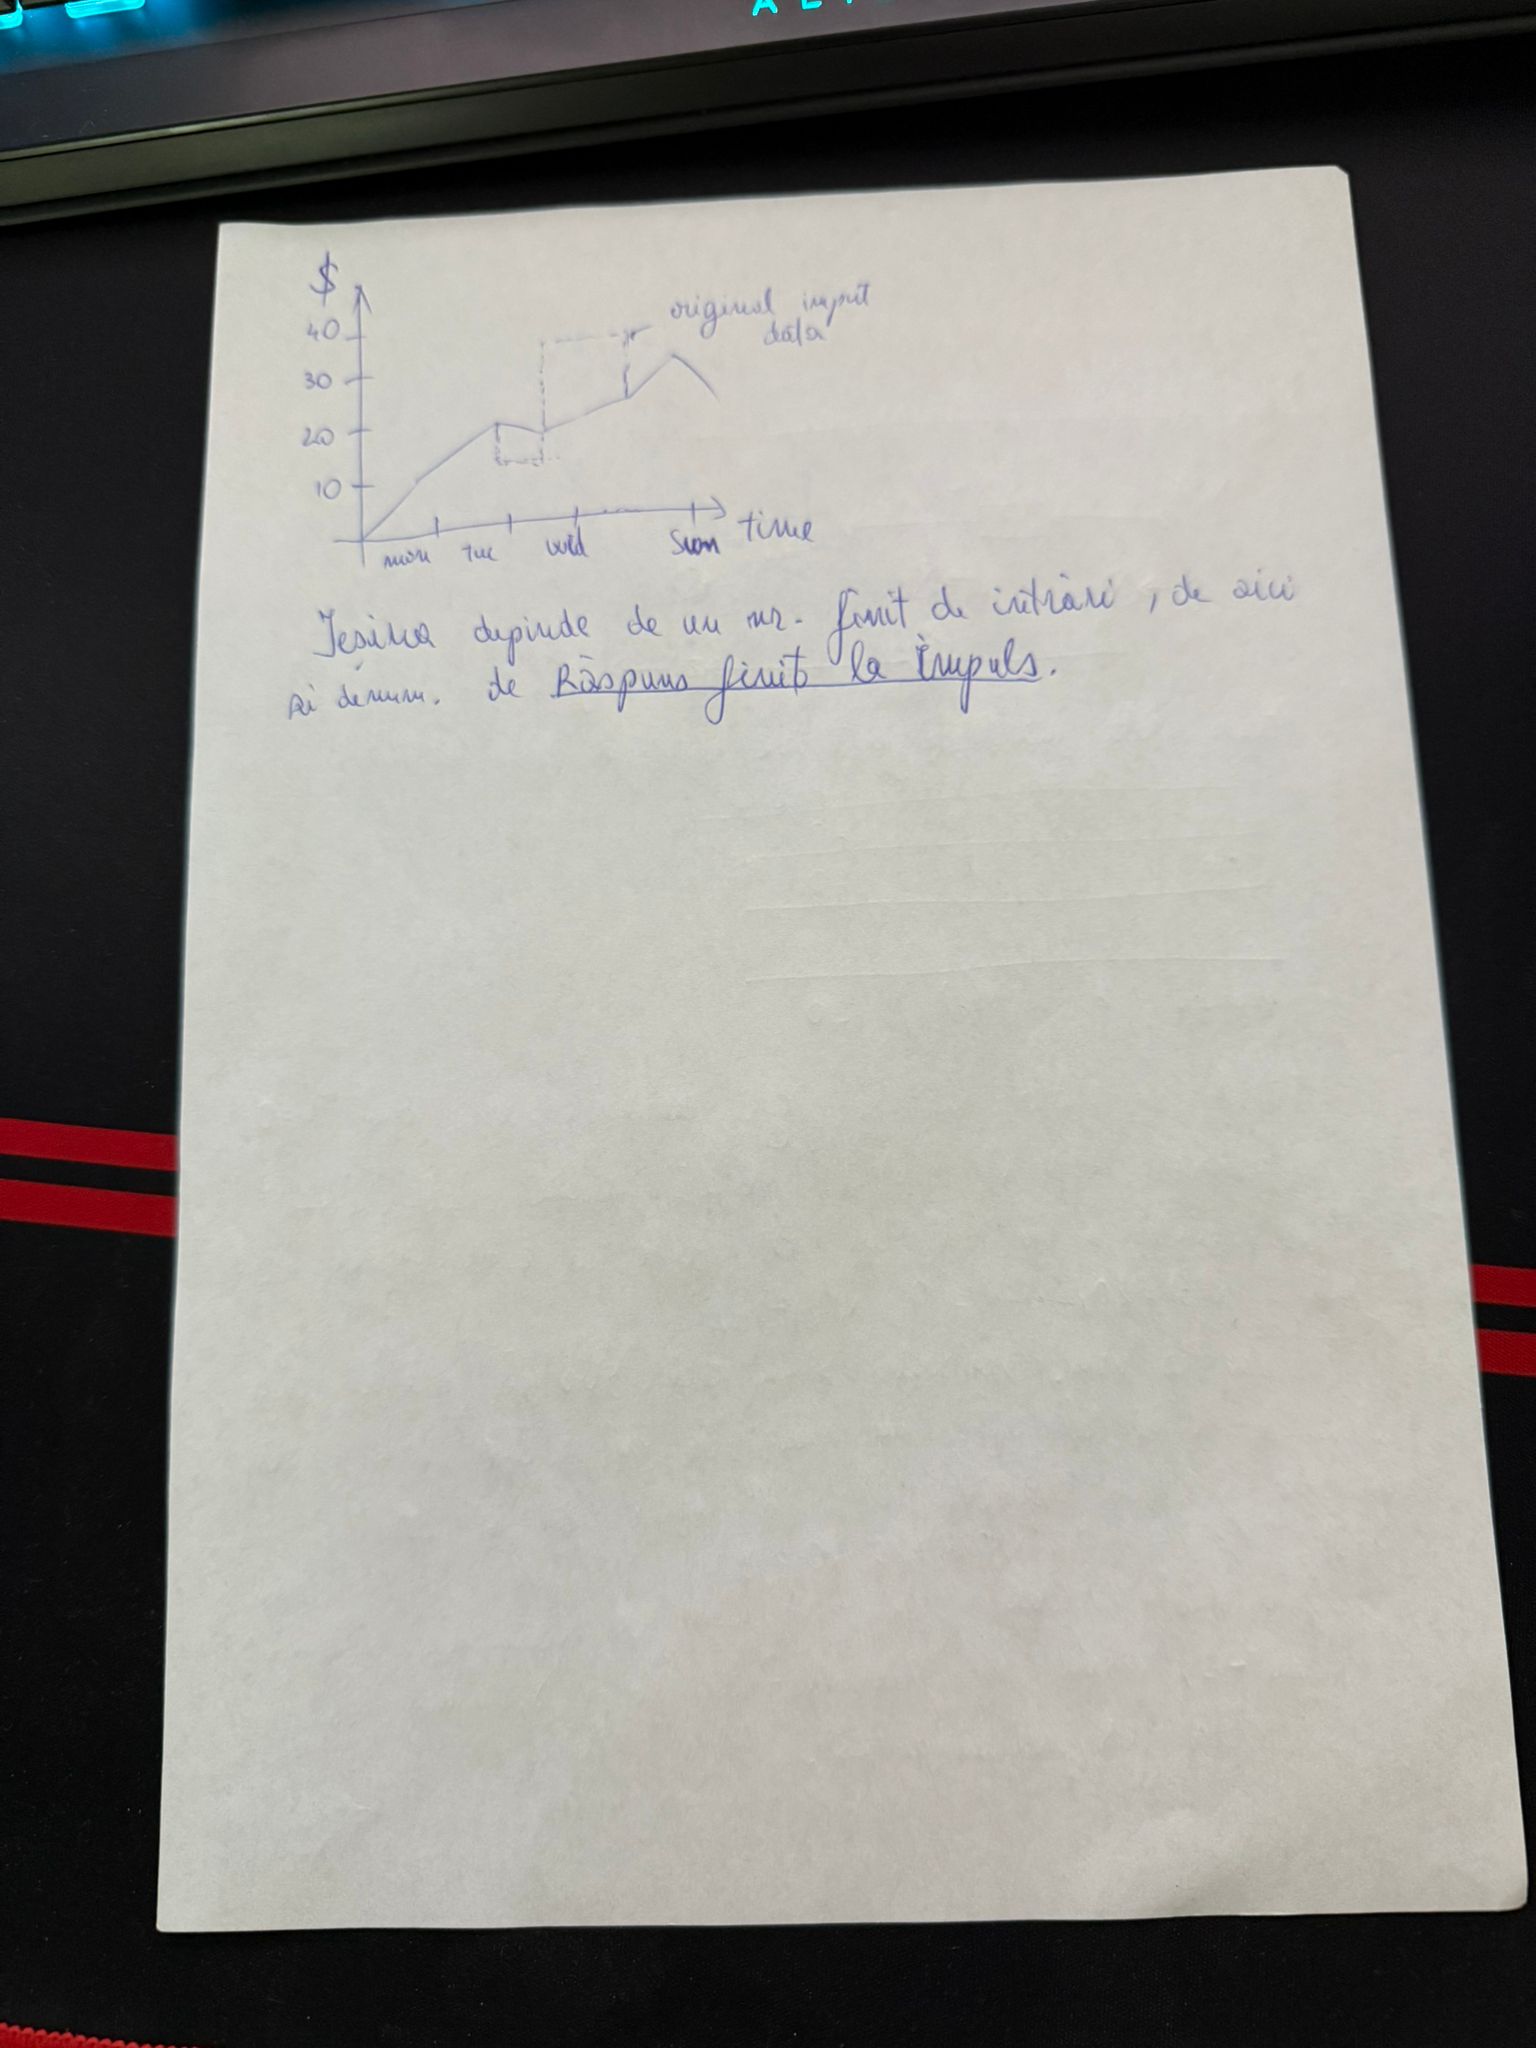 $
40
30
20
10
original input
data
mon tue wed Sun time
Ieșirea depinde de un nr. finit de intrări, de aici
și denum. de Răspuns finit la Impuls.